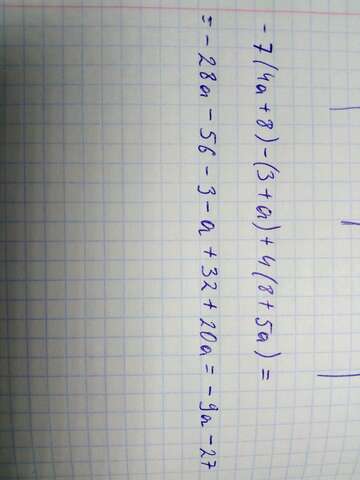 - 7(4a+8)-(3+a)+4(8+5a)=
=-28a-56-3-a+32+20a=-9a-27